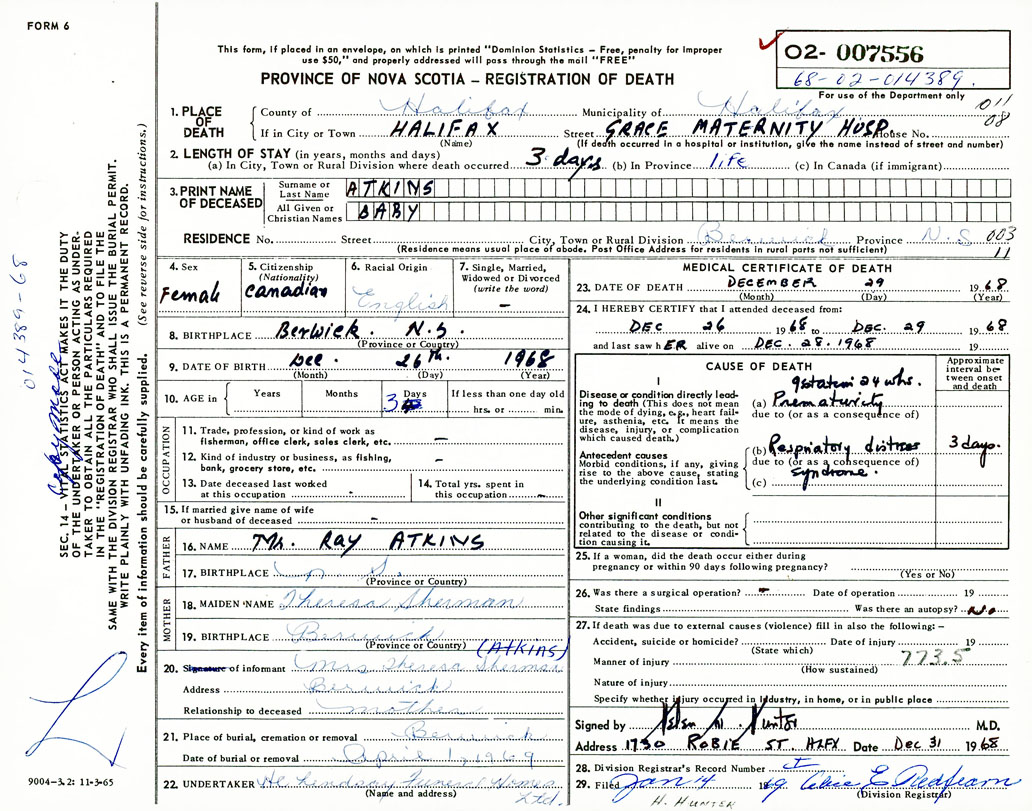 FORM 6
This form, if placed in an envelope, on which is printed "Dominion Statistics – Free, penalty for improper
use $50," and properly addressed will pass through the mail "FREE"
PROVINCE OF NOVA SCOTIA – REGISTRATION OF DEATH
O2- 007556
68-02-014389.
For use of the Department only
011
08
1. PLACE OF DEATH { County of Halifax Municipality of Halifax
If in City or Town HALIFAX Street GRACE MATERNITY HOSP House No.
(Name) (If death occurred in a hospital or institution, give the name instead of street and number)
2. LENGTH OF STAY (in years, months and days)
(a) In City, Town or Rural Division where death occurred 3 days (b) In Province life (c) In Canada (if immigrant)
3. PRINT NAME OF DECEASED
Surname or Last Name ATKINS
All Given or Christian Names BABY
RESIDENCE No. Street City, Town or Rural Division Berwick Province N.S 003
(Residence means usual place of abode. Post Office Address for residents in rural parts not sufficient) 11
4. Sex Female
5. Citizenship (Nationality) Canadian
6. Racial Origin English
7. Single, Married, Widowed or Divorced (write the word) –
8. BIRTHPLACE Berwick. N.S.
(Province or Country)
9. DATE OF BIRTH Dec. 26th 1968
(Month) (Day) (Year)
10. AGE in { Years Months Days 3 If less than one day old hrs. or min.
OCCUPATION
11. Trade, profession, or kind of work as
fisherman, office clerk, sales clerk, etc. –
12. Kind of industry or business, as fishing,
bank, grocery store, etc. –
13. Date deceased last worked
at this occupation -
14. Total yrs. spent in
this occupation -
15. If married give name of wife
or husband of deceased -
FATHER
16. NAME Mr. RAY ATKINS
17. BIRTHPLACE N S.
(Province or Country)
MOTHER
18. MAIDEN NAME Theresa Sherman
19. BIRTHPLACE Berwick
(Province or Country) (ATKINS)
20. Signature of informant Mrs Theresa Sherman
Address Berwick
Relationship to deceased mother
21. Place of burial, cremation or removal Berwick
Date of burial or removal April 1, 1969
22. UNDERTAKER Lindsay Funeral Homes
(Name and address) Ltd.
MEDICAL CERTIFICATE OF DEATH
23. DATE OF DEATH DECEMBER 29 1968
(Month) (Day) (Year)
24. I HEREBY CERTIFY that I attended deceased from:
DEC 26 1968 to DEC. 29 1968
and last saw hER alive on DEC. 28. 1968 19
CAUSE OF DEATH
Approximate interval between onset and death
I
Disease or condition directly leading to death (This does not mean
the mode of dying, e.g., heart failure, asthenia, etc. It means the
disease, injury, or complication
which caused death.)
24 wks.
(a) Prematurity
due to (or as a consequence of)
Antecedent causes
Morbid conditions, if any, giving
rise to the above cause, stating
the underlying condition last.
(b) Respiratory distress 3 days.
due to (or as a consequence of)
syndrome.
(c)
II
Other significant conditions
contributing to the death, but not
related to the disease or condition causing it.
25. If a woman, did the death occur either during
pregnancy or within 90 days following pregnancy?
(Yes or No)
26. Was there a surgical operation? – Date of operation 19
State findings Was there an autopsy? No
27. If death was due to external causes (violence) fill in also the following: –
Accident, suicide or homicide? Date of injury 19
(State which) 773.5
Manner of injury
(How sustained)
Nature of injury
Specify whether injury occurred in industry, in home, or in public place
Signed by Helen N. Hunter M.D.
Address 1730 ROBIE ST. HLFX Date Dec 31 1968
28. Division Registrar's Record Number
29. Filed Jan 14 1969 Alice E Redfearn
(Division Registrar)
H. HUNTER
9004-3.2: 11-3-65
SEC. 14 – VITAL STATISTICS ACT MAKES IT THE DUTY
OF THE UNDERTAKER OR PERSON ACTING AS UNDER-
TAKER TO OBTAIN ALL THE PARTICULARS REQUIRED
IN THE "REGISTRATION OF DEATH" AND TO FILE THE
SAME WITH THE DIVISION REGISTRAR WHO SHALL ISSUE THE BURIAL PERMIT.
WRITE PLAINLY WITH UNFADING INK. THIS IS A PERMANENT RECORD.
Every item of information should be carefully supplied. (See reverse side for instructions.)
014389-68